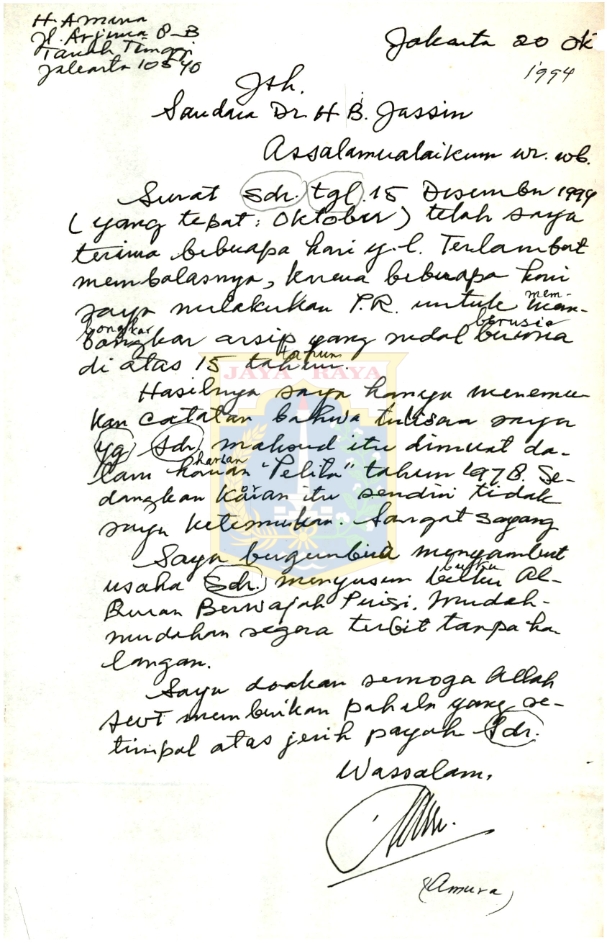 H. Amura
Jl. Arjuna 8-B
Tanah Tinggi
Jakarta 10540
Jakarta 20 Ok
1994
Yth.
Saudara Dr. H B. Jassin
Assalamualaikum wr. wb.
Surat Sdr. tgl. 15 Desember 1994
(yang tepat: Oktober) telah saya
terima beberapa hari y.l. Terlambat
membalasnya, karena beberapa hari
saya melakukan P.R. untuk mem-
bongkar
bongkar arsip yang sudah berusia
di atas 15 tahun. tahun
JAYA RAYA
Hasilnya saya hanya menemu-
kan catatan bahwa tulisan saya
yg Sdr. maksud itu dimuat da-
lam harian "Pelita" tahun 1978. Se-
dangkan koran itu sendiri tidak
saya ketemukan. Sangat sayang
Saya bergembira menyambut
usaha Sdr. menyusun buku Al-
Quran Berwajah Puisi. Mudah-
mudahan segera terbit tanpa ha-
langan.
Saya doakan semoga Allah
swt memberikan pahala yang se-
timpal atas jerih payah Sdr.
Wassalam,
(Amura)